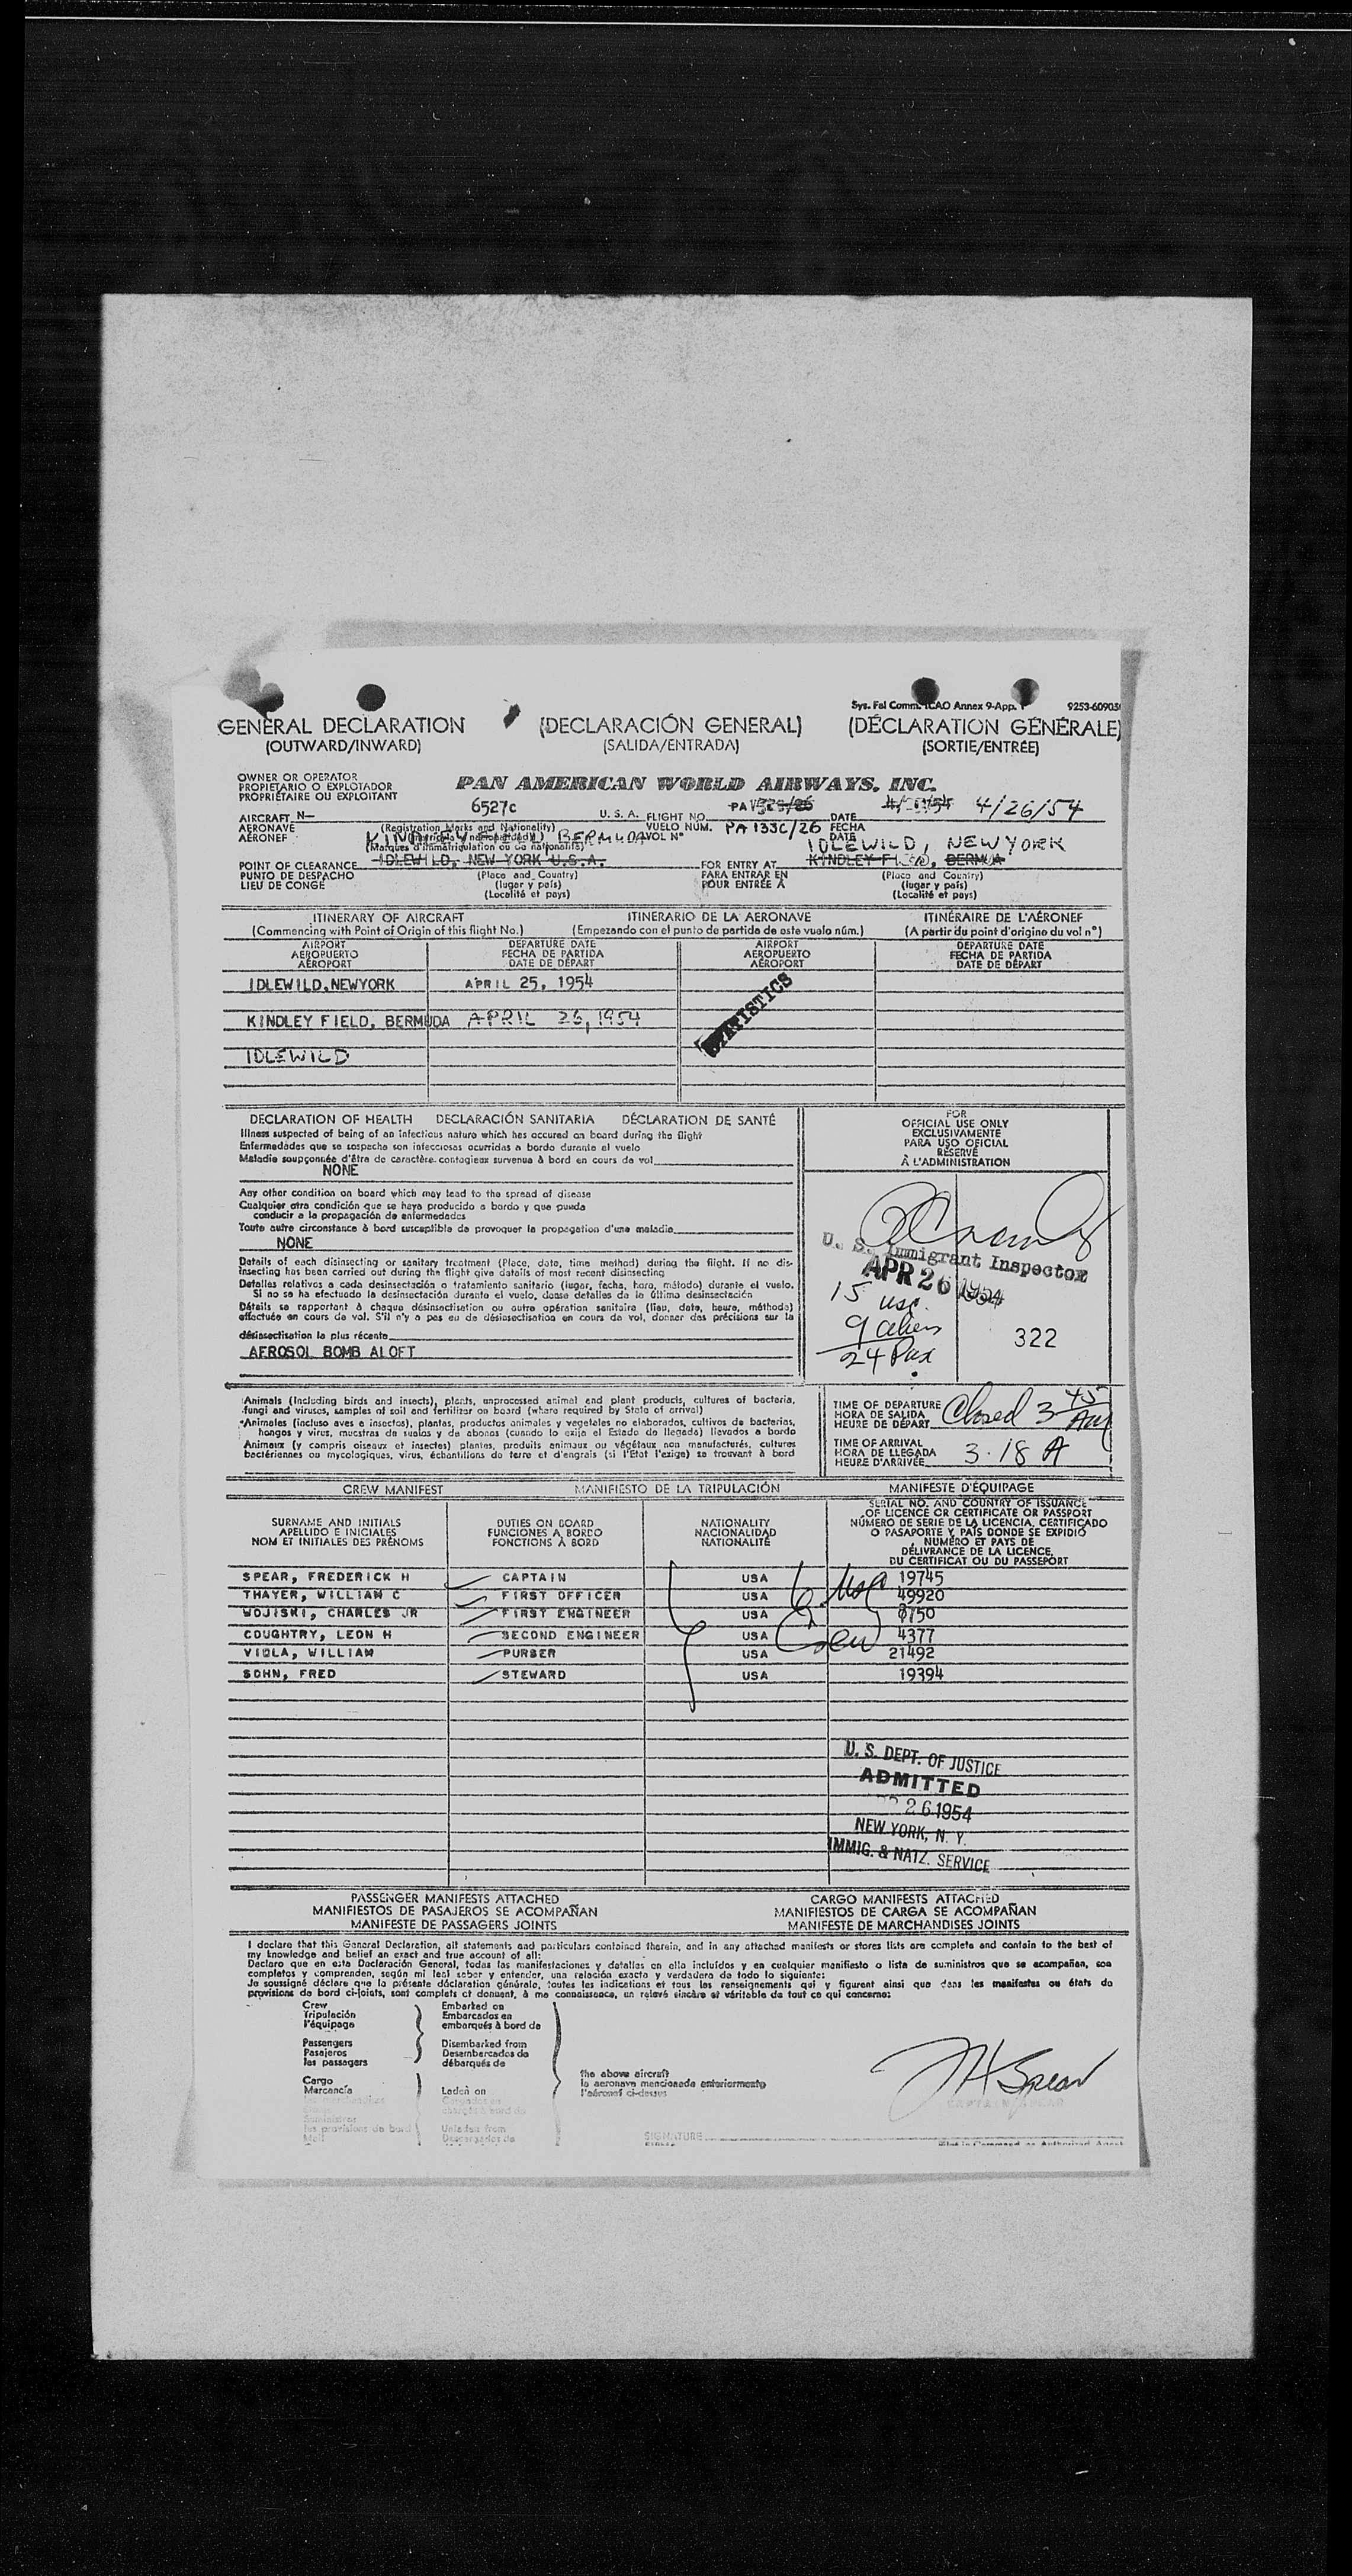 Sys. Fal Comm. ICAO Annex 9-App. 1 9253-60905
GENERAL DECLARATION (DECLARACIÓN GENERAL) (DÉCLARATION GÉNÉRALE)
(OUTWARD/INWARD) (SALIDA/ENTRADA) (SORTIE/ENTRÉE)
OWNER OR OPERATOR
PROPIETARIO O EXPLOTADOR
PROPRIÉTAIRE OU EXPLOITANT
PAN AMERICAN WORLD AIRWAYS, INC.
6527c U. S. A. PA 4/26/54
AIRCRAFT N— FLIGHT NO. DATE
AERONAVE (Registration Marks and Nationality) VUELO NÚM. PA 133C/26 FECHA
AÉRONEF KINDLEY FIELD, BERMUDA VOL Nº DATE
(Marques d'immatriculation ou de nationalité) IDLEWILD, NEW YORK
POINT OF CLEARANCE IDLEWILD, NEW YORK U.S.A. FOR ENTRY AT KINDLEY FIELD, BERMUA
PUNTO DE DESPACHO (Place and Country) PARA ENTRAR EN (Place and Country)
LIEU DE CONGÉ (lugar y país) POUR ENTRÉE À (lugar y país)
(Localité et pays) (Localité et pays)
ITINERARY OF AIRCRAFT ITINERARIO DE LA AERONAVE ITINÉRAIRE DE L'AÉRONEF
(Commencing with Point of Origin of this flight No.) (Empezando con el punto de partida de este vuelo núm.) (A partir du point d'origine du vol nº)
AIRPORT DEPARTURE DATE AIRPORT DEPARTURE DATE
AEROPUERTO FECHA DE PARTIDA AEROPUERTO FECHA DE PARTIDA
AÉROPORT DATE DE DÉPART AÉROPORT DATE DE DÉPART
IDLEWILD, NEWYORK APRIL 25, 1954
STATISTICS
KINDLEY FIELD, BERMUDA APRIL 26, 1954
IDLEWILD
DECLARATION OF HEALTH DECLARACIÓN SANITARIA DÉCLARATION DE SANTÉ
Illness suspected of being of an infectious nature which has occured on board during the flight
Enfermedades que se sospecha son infecciosas ocurridas a bordo durante el vuelo
Maladie soupçonnée d'être de caractère contagieux survenue à bord en cours de vol
NONE
Any other condition on board which may lead to the spread of disease
Cualquier otra condición que se haya producido a bordo y que pueda
conducir a la propagación de enfermedades
Toute autre circonstance à bord susceptible de provoquer la propagation d'une maladie
NONE
Details of each disinsecting or sanitary treatment (Place, date, time method) during the flight. If no dis-
insecting has been carried out during the flight give details of most recent disinsecting
Detalles relativos a cada desinsectación o tratamiento sanitario (lugar, fecha, hora, método) durante el vuelo.
Si no se ha efectuado la desinsectación durante el vuelo, dense detalles de la última desinsectación
Détails se rapportant à chaque désinsectisation ou autre opération sanitaire (lieu, date, heure, méthode)
effectuée en cours de vol. S'il n'y a pas eu de désinsectisation en cours de vol, donner des précisions sur la
désinsectisation la plus récente
AEROSOL BOMB ALOFT
FOR
OFFICIAL USE ONLY
EXCLUSIVAMENTE
PARA USO OFICIAL
RÉSERVÉ
À L'ADMINISTRATION
U. S. Immigrant Inspector
APR 26 1954
15 usc.
9 aliens
24 Pax
322
Animals (Including birds and insects), plants, unprocessed animal and plant products, cultures of bacteria,
fungi and viruses, samples of soil and fertilizer on board (where required by State of arrival)
Animales (incluso aves e insectos), plantas, productos animales y vegetales no elaborados, cultivos de bacterias,
hongos y virus, muestras de suelos y de abonos (cuando lo exija el Estado de llegada) llevados a bordo
Animaux (y compris oiseaux et insectes) plantes, produits animaux ou végétaux non manufacturés, cultures
bactériennes ou mycologiques, virus, échantillons de terre et d'engrais (si l'Etat l'exige) se trouvant à bord
TIME OF DEPARTURE
HORA DE SALIDA
HEURE DE DÉPART Closed 3 45 AM
TIME OF ARRIVAL
HORA DE LLEGADA
HEURE D'ARRIVÉE 3.18 A
CREW MANIFEST MANIFIESTO DE LA TRIPULACIÓN MANIFESTE D'ÉQUIPAGE
SURNAME AND INITIALS
APELLIDO E INICIALES
NOM ET INITIALES DES PRÉNOMS
DUTIES ON BOARD
FUNCIONES A BORDO
FONCTIONS À BORD
NATIONALITY
NACIONALIDAD
NATIONALITÉ
SERIAL NO. AND COUNTRY OF ISSUANCE
OF LICENCE OR CERTIFICATE OR PASSPORT
NÚMERO DE SERIE DE LA LICENCIA, CERTIFICADO
O PASAPORTE Y PAÍS DONDE SE EXPIDIÓ
NUMÉRO ET PAYS DE
DÉLIVRANCE DE LA LICENCE,
DU CERTIFICAT OU DU PASSEPORT
SPEAR, FREDERICK H CAPTAIN USA 19745
THAYER, WILLIAM C FIRST OFFICER USA 49920
WOJISKI, CHARLES JR FIRST ENGINEER USA 8750
COUGHTRY, LEON H SECOND ENGINEER USA 4377
VIOLA, WILLIAM PURSER USA 21492
SOHN, FRED STEWARD USA 19394
6 usc
Crew
U. S. DEPT. OF JUSTICE
ADMITTED
26 1954
NEW YORK, N. Y.
IMMIG. & NATZ. SERVICE
PASSENGER MANIFESTS ATTACHED CARGO MANIFESTS ATTACHED
MANIFIESTOS DE PASAJEROS SE ACOMPAÑAN MANIFIESTOS DE CARGA SE ACOMPAÑAN
MANIFESTE DE PASSAGERS JOINTS MANIFESTE DE MARCHANDISES JOINTS
I declare that this General Declaration, all statements and particulars contained therein, and in any attached manifests or stores lists are complete and contain to the best of
my knowledge and belief an exact and true account of all:
Declaro que en esta Declaración General, todas las manifestaciones y detalles en ella incluídos y en cualquier manifiesto o lista de suministros que se acompañan, son
completos y comprenden, según mi leal saber y entender, una relación exacta y verdadera de todo lo siguiente:
Je soussigné déclare que la présente déclaration générale, toutes les indications et tous les renseignements qui y figurent ainsi que dans les manifestes ou états de
provisions de bord ci-joints, sont complets et donnent, à ma connaissance, un relevé sincère et véritable de tout ce qui concerne:
Crew Embarked on
Tripulación Embarcados en
l'équipage embarqués à bord de
Passengers Disembarked from
Pasajeros Desembarcados de
les passagers débarqués de
Cargo
Mercancía Laden on
the above aircraft
la aeronave mencionada anteriormente
l'aéronef ci-dessus
Suministros
les provisions de bord Unladen from
Mail Descargados de
FH Spear
CAPTAIN SPEAR
SIGNATURE
Pilot in Command or Authorized Agent